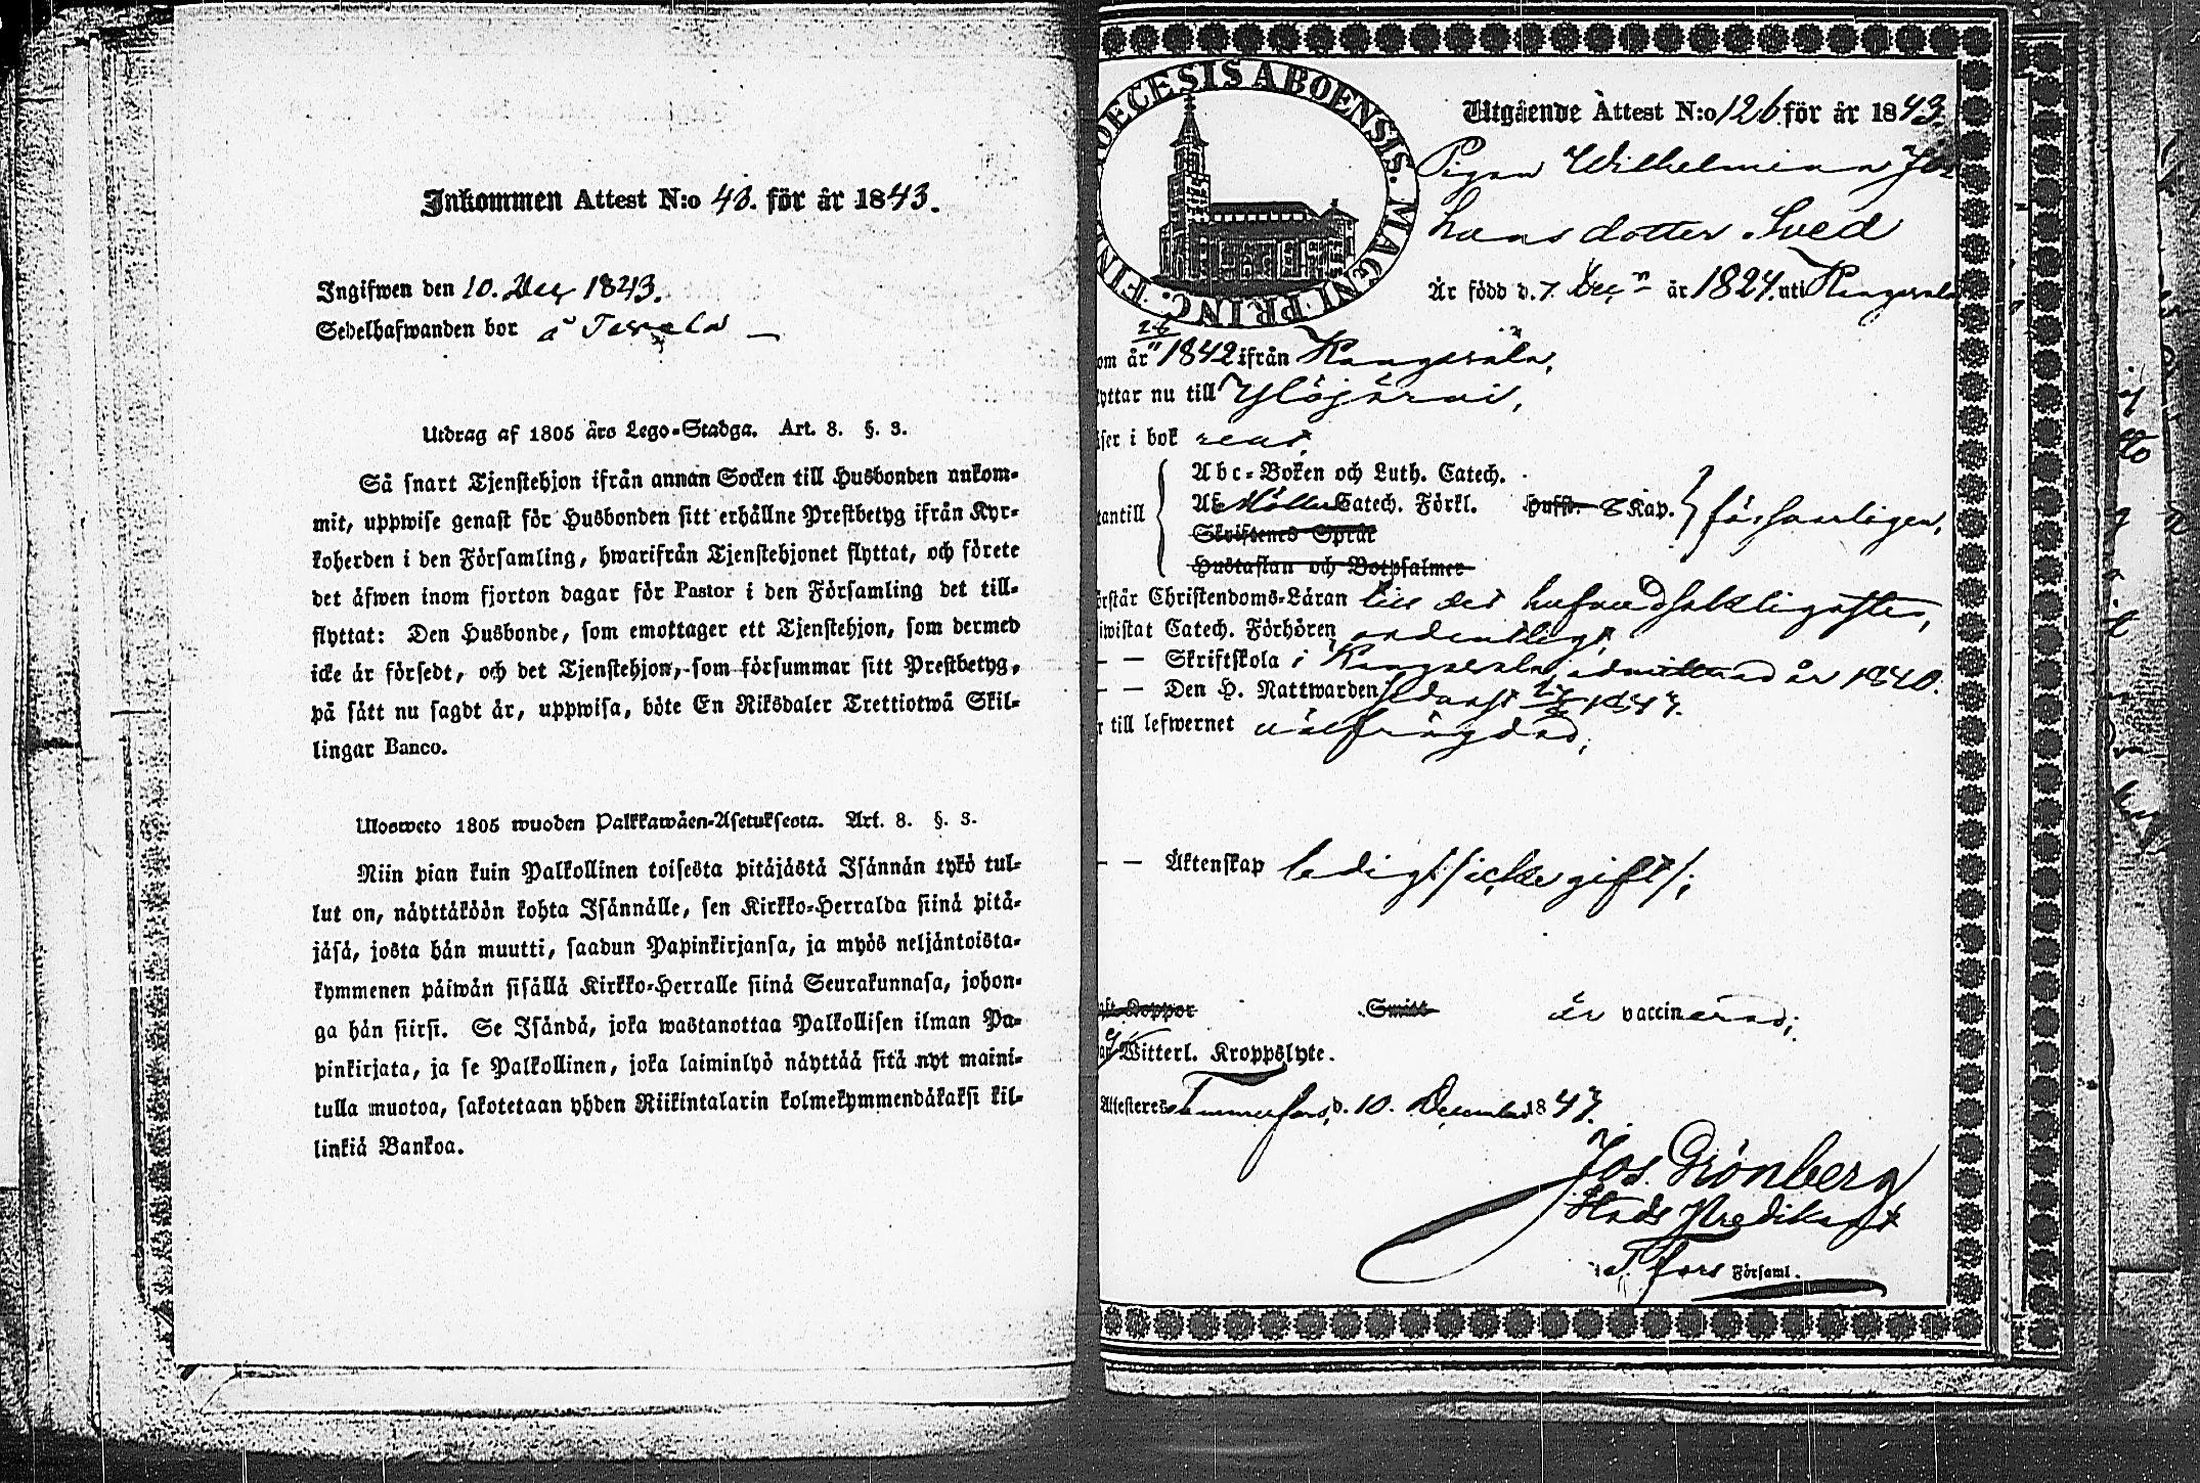 Inkommen Attest N:o 43. för år 1843.
Ingifwen den 10. Dec 1843.
Sedelhafwanden bor å
Utdrag af 1805 års Lego-Stadga. Art. 8. §. 3.
Så snart Tjenstehjon ifrån annan Socken till Husbonden ankom-
mit, uppwise genast för Husbonden sitt erhållne Prestbetyg ifrån Kyr-
koherden i den Församling, hwarifrån Tjenstehjonet flyttat, och förete
det äfwen inom fjorton dagar för Pastor i den Församling det till-
flyttat: Den Husbonde, som emottager ett Tjenstehjon, som dermed
icke är försedt, och det Tjenstehjon, som försummar sitt Prestbetyg,
på sätt nu sagdt är, uppwisa, böte En Riksdaler Trettiotwå Skil-
lingar Banco.
Ulosweto 1805 wuoden Palkkawäen-Asetuksesta. Art. 8. §. 3.
Niin pian kuin Palkollinen toisesta pitäjästä Isännän tykö tul-
lut on, näyttäköön kohta Isännälle, sen Kirkko-Herralda siinä pitä-
jäsä, josta hän muutti, saadun Papinkirjansa, ja myös neljäntoista-
kymmenen päiwän sisällä Kirkko-Herralle siinä Seurakunnasa, johon-
ga hän siirsi. Se Isändä, joka wastanottaa Palkollisen ilman Pa-
pinkirjata, ja se Palkollinen, joka laiminlyö näyttää sitä nyt maini-
tulla muotoa, sakotetaan yhden Riikintalarin kolmekymmendäkaksi kil-
linkiä Bankoa.
DIOECESIS ABOENSIS. MAGNI PRINC. FIN
Utgående Attest N:o 126 för år 1843.
Pigan Wilhelmina Jo
hans dotter Sved
Är född d. 7. Dec:n år 1824. uti Kangasala
om år 1842 ifrån Kangasala,
yttar nu till Ylöjärvi,
äser i bok rent,
Abc-Boken och Luth. Catech.
tantill Af Möllers Catech. Förkl. Hufst. 8 Kap. försvarligen,
Skriftenes Språk
Hustaflan och Botpsalmer
örstår Christendoms-Läran till det hufvudsakligaste,
iwistat Catech. Förhören ordentligt,
— — Skriftskola i Kangasala, admitterad år 1840.
— — Den H. Nattwarden sednast 1843.
r till lefwernet välfrägdad,
— — Äktenskap ledig /:icke gift:/;
aft Koppor Smitt är vaccinerad;
Witterl. Kroppslyte.
Attesteres Tammerfors, d. 10. December 1843.
Jos. Grönberg
Stads Predikant
i T. fors Församl.